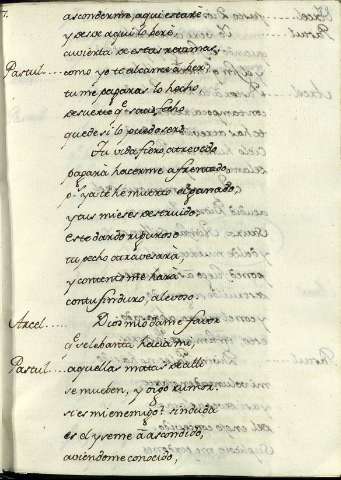 asconderme, aqui estaré
y desde aqui lo veré
cuvierta de estas ramas,
Pascul..... como yo te alcance à ver
tu me pagaràs lo hecho
q.e satisfecho
quede si lo puedo ser
Tu vida fiero, atrevido
pagarà hacerme afrentado,
p.r q.e ya te he muerto el ganado,
y aus mieses destruido,
este dardo riguroso
tu pecho atravesarà,
y contento me harà
con tu fin duro, alevoso.
Arcel..... Dios mio dame favor
q.e se lebanta hacia mi,
Pascul..... aquellas matas de alli
se mueben, y oigo rumor.
si es mi enemigo? sin duda
es el y se me à ascondido,
aviendome conocido,